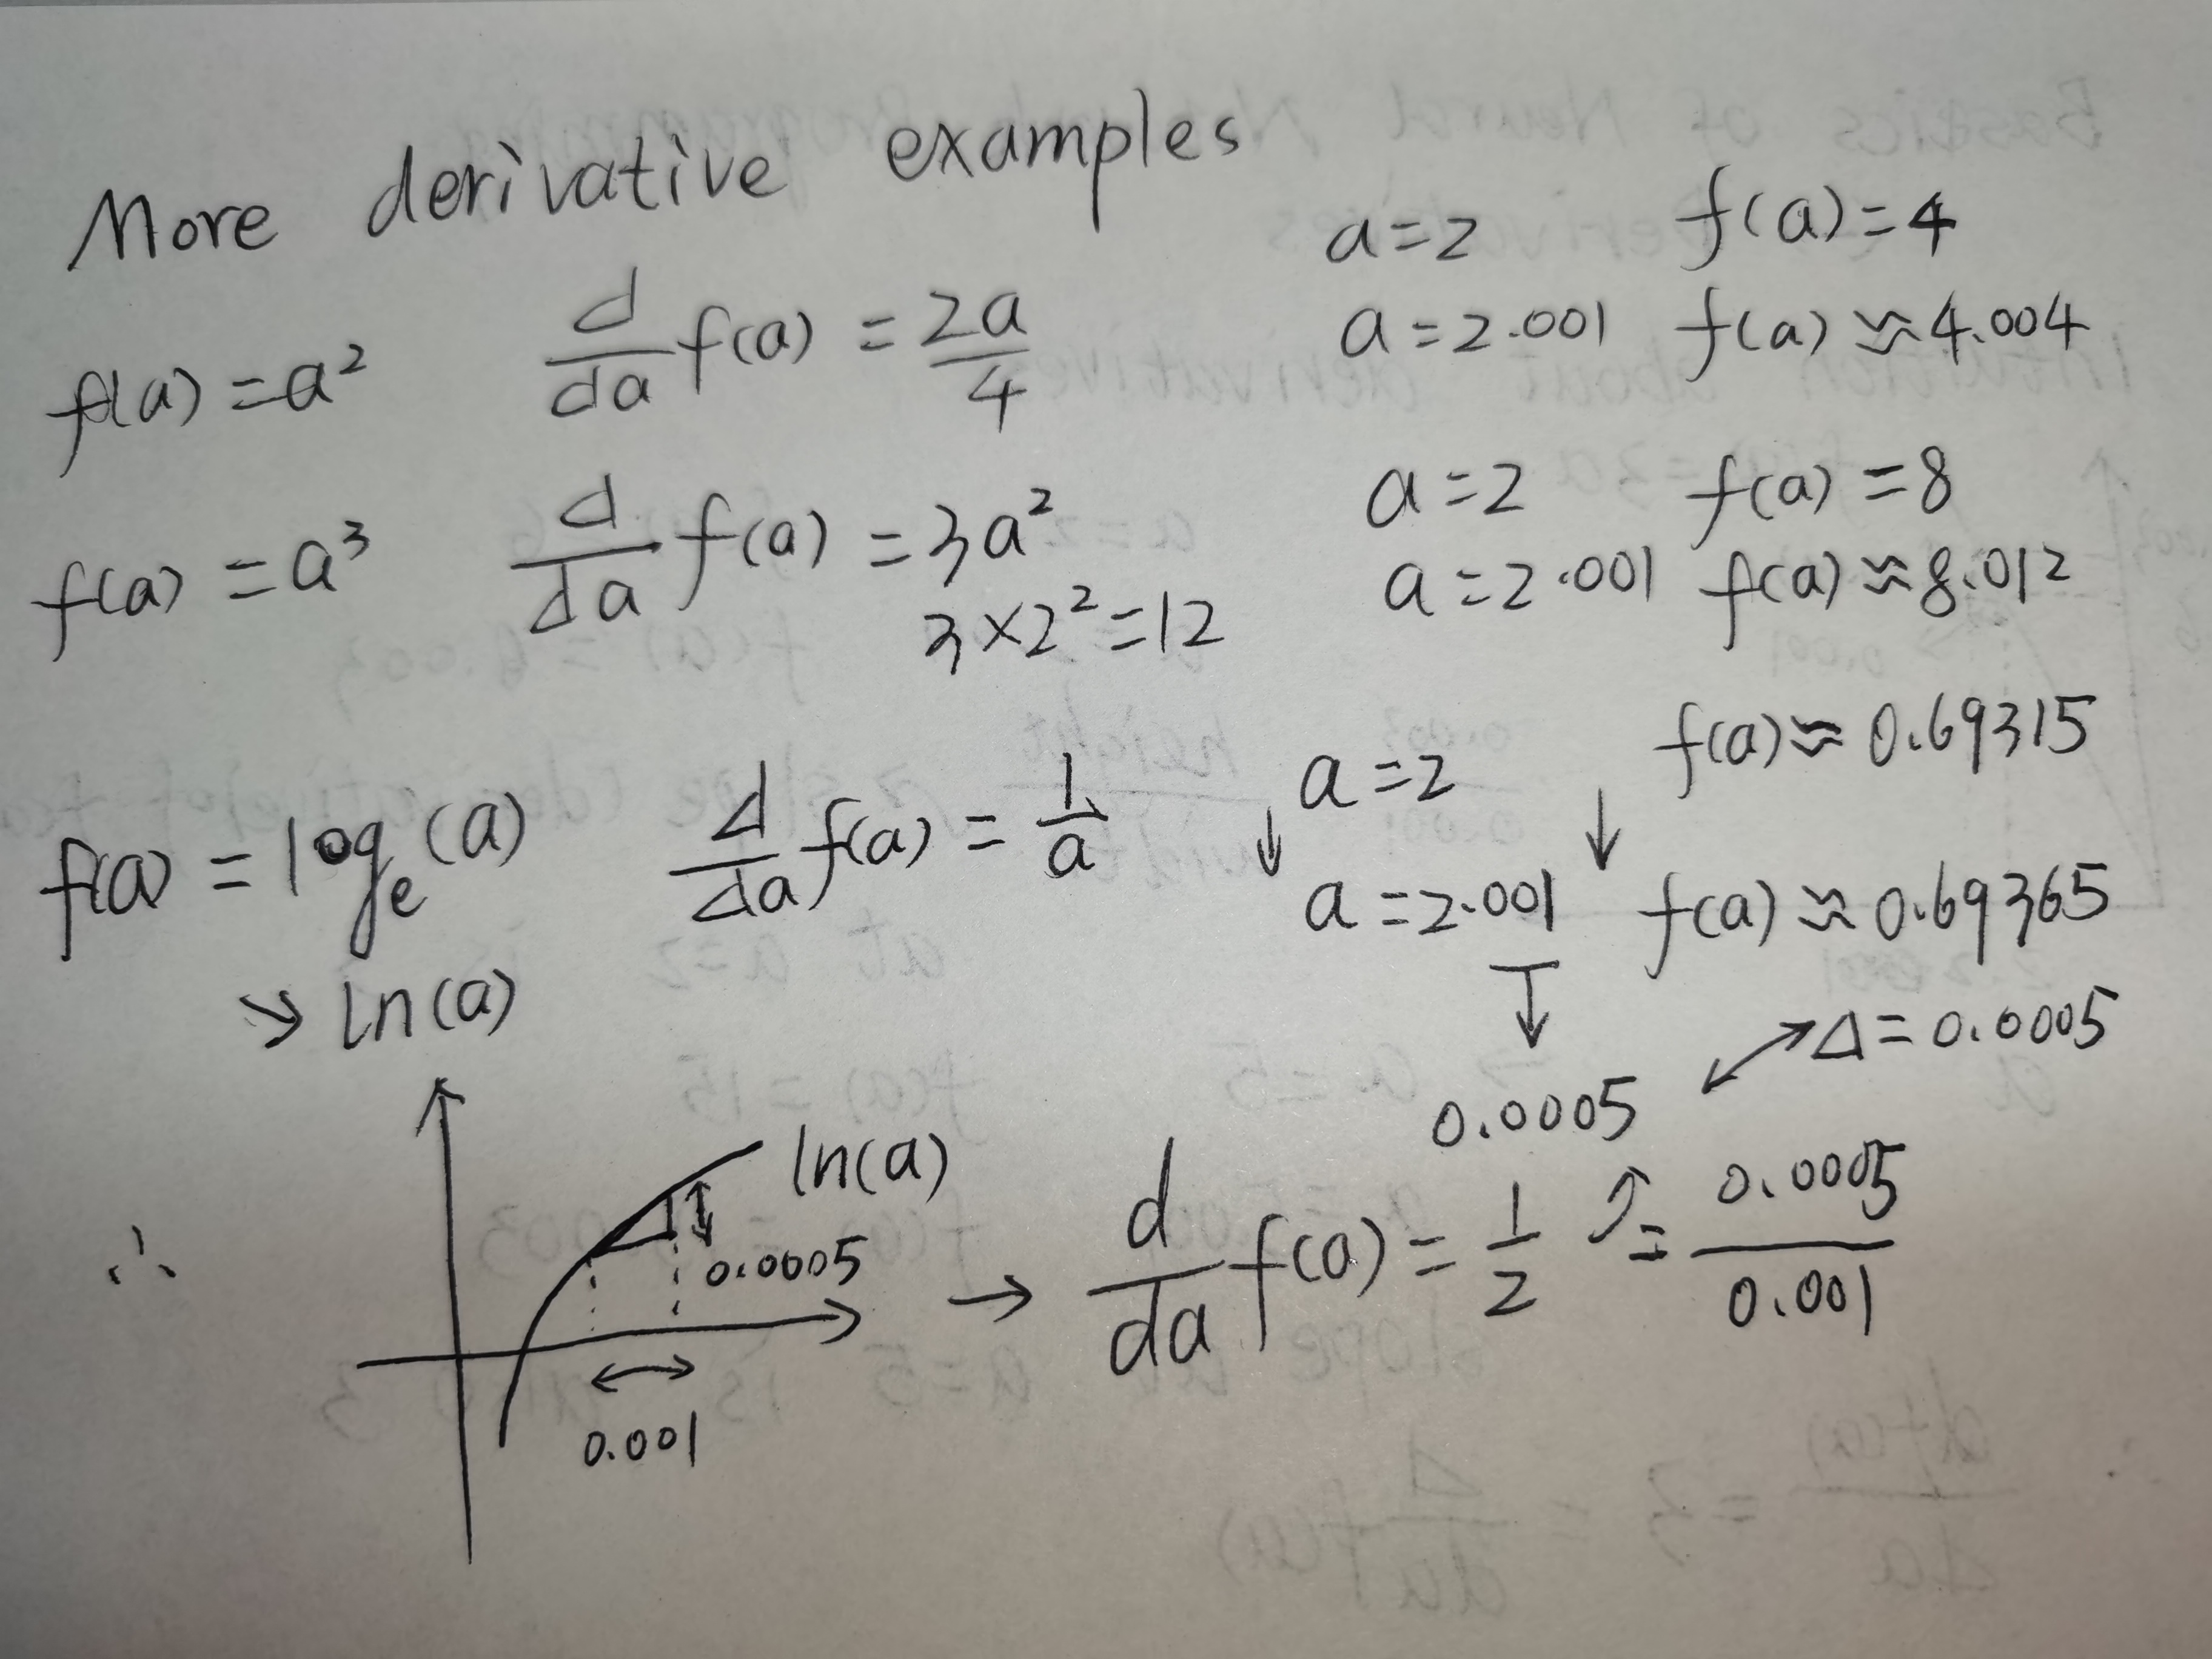 More derivative examples
f(a) = a² d/da f(a) = 2a/4 a = 2 f(a) = 4
a = 2.001 f(a) ≈ 4.004
f(a) = a³ d/da f(a) = 3a² a = 2 f(a) = 8
3 × 2² = 12 a = 2.001 f(a) ≈ 8.012
f(a) = log_e(a) d/da f(a) = 1/a a = 2 f(a) ≈ 0.69315
↓ ↓
a = 2.001 f(a) ≈ 0.69365
→ ln(a)
↓ ↔ Δ = 0.0005
0.0005
ln(a)
0.0005
0.001
∴ → d/da f(a) = 1/2 = 0.0005/0.001